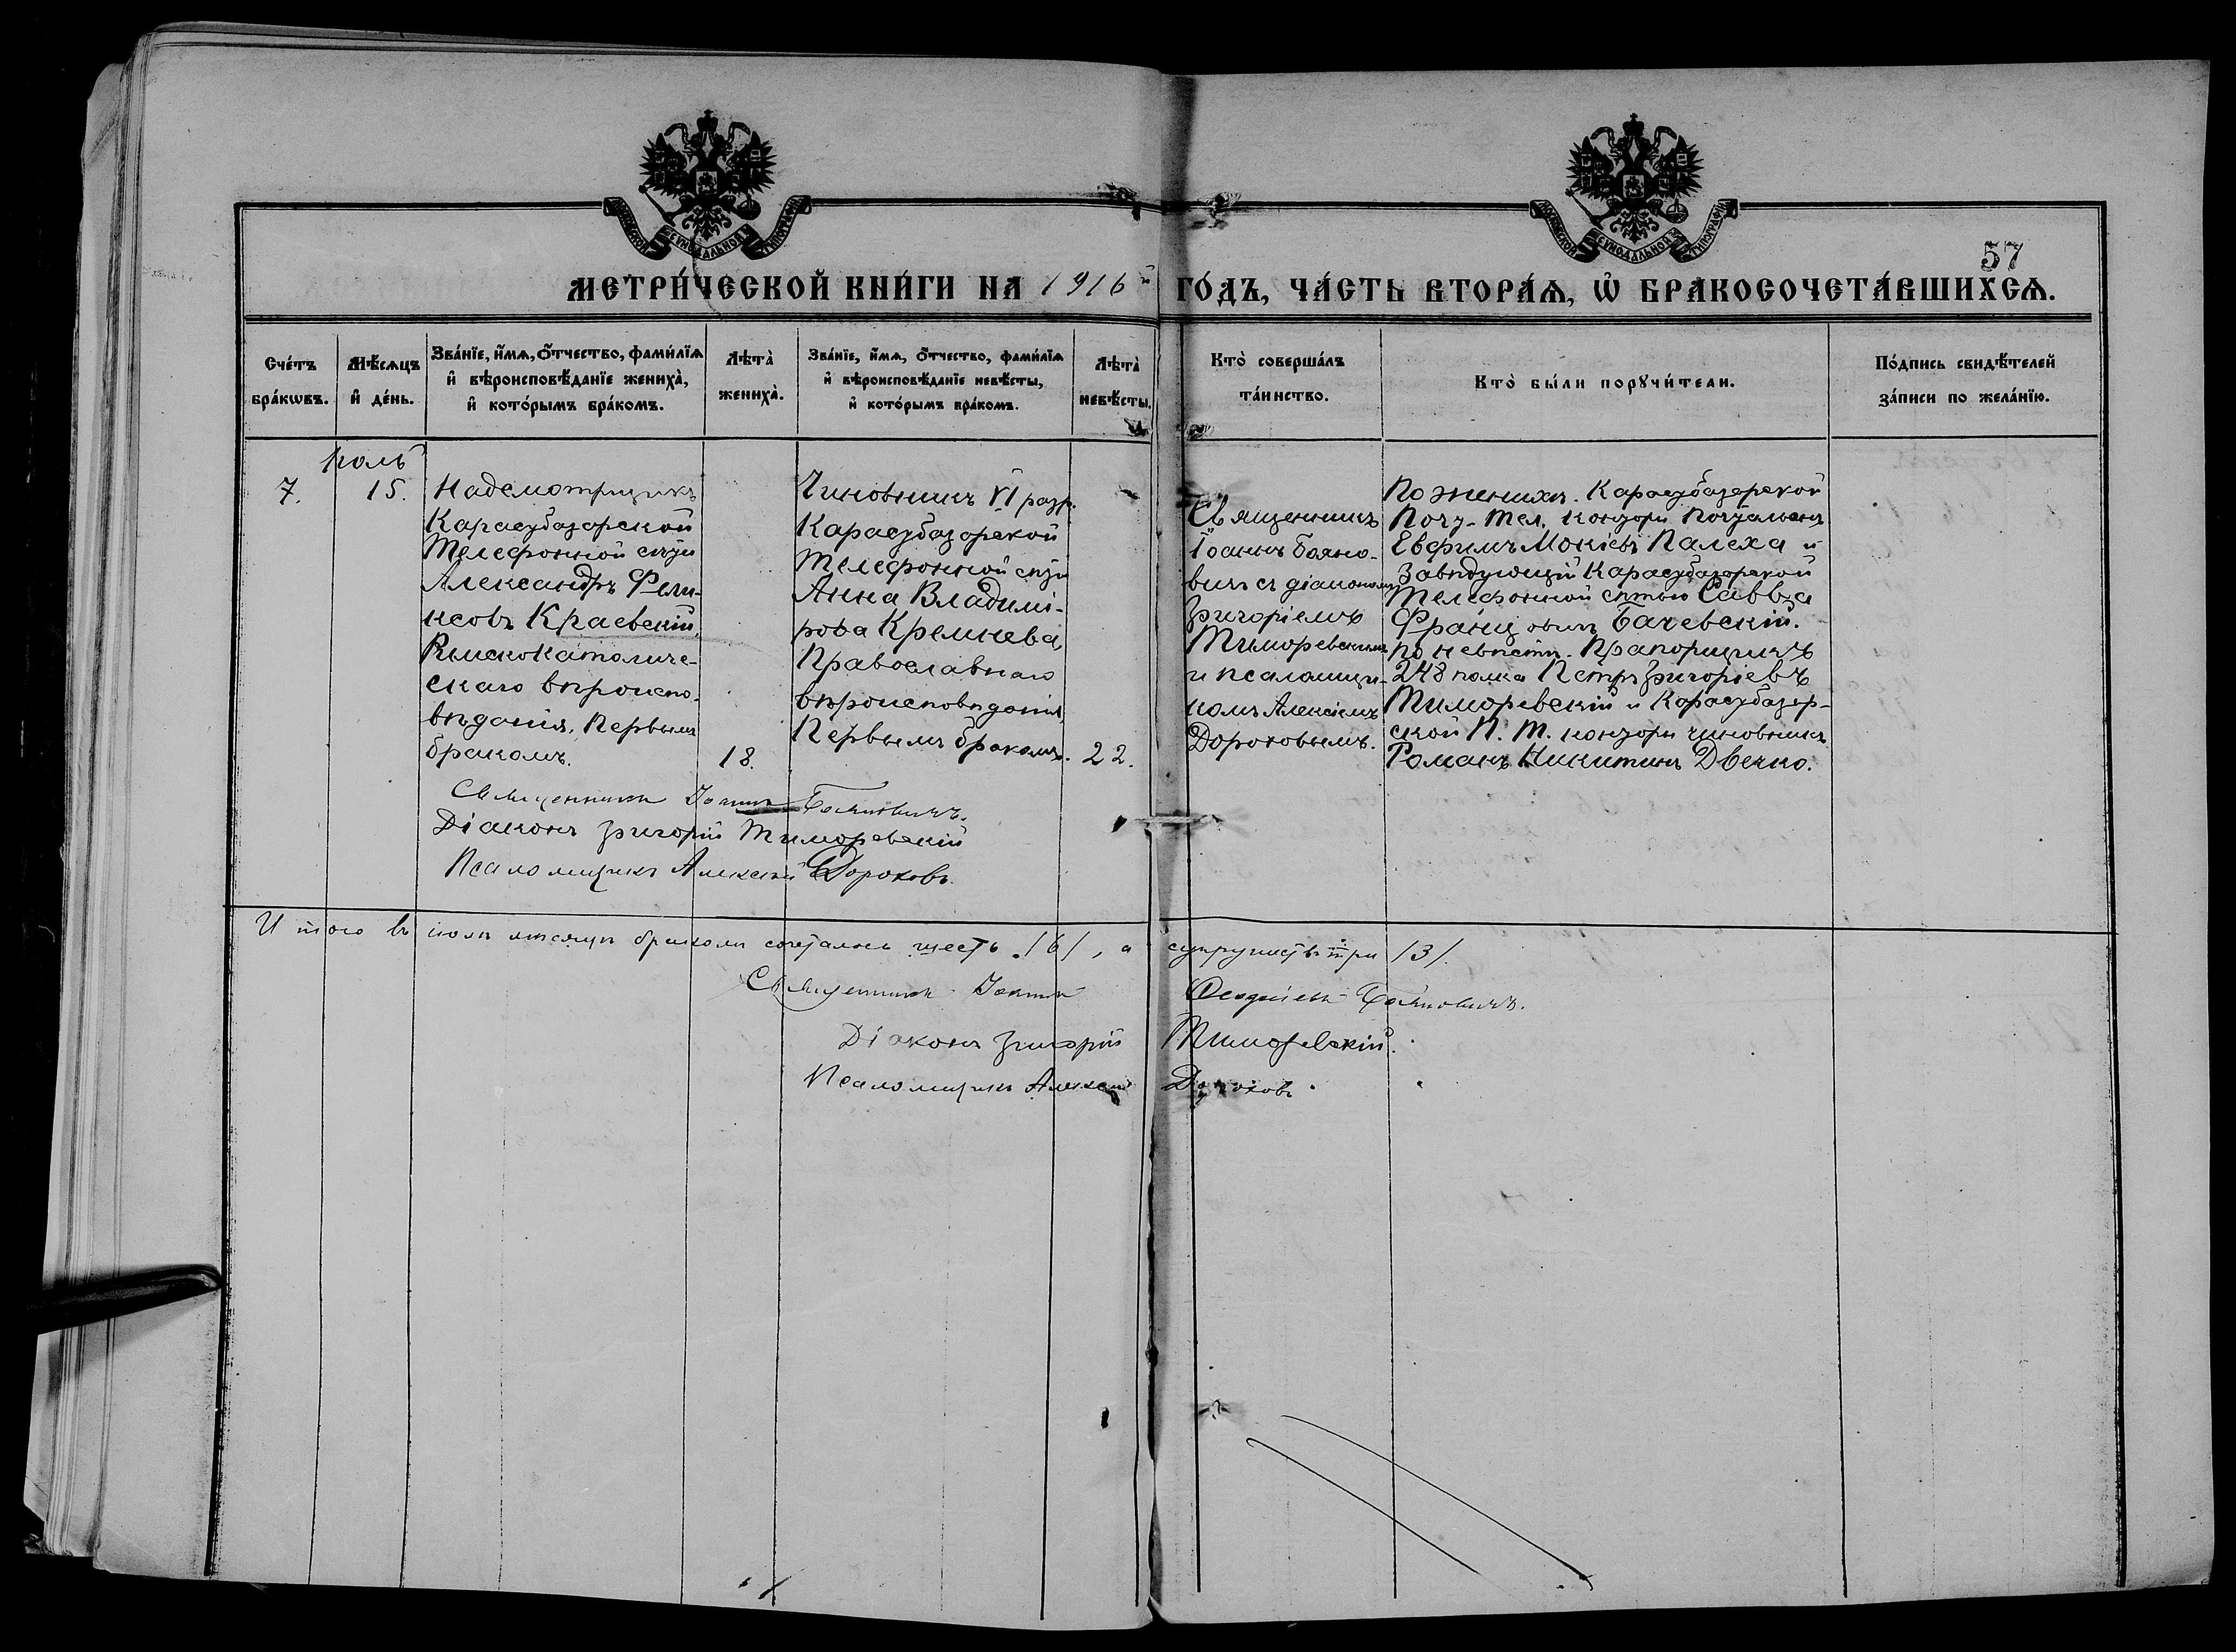 МОСКОВСКОЙ СѴНОДАЛЬНОЙ ТИПОГРАФІИ
МОСКОВСКОЙ СѴНОДАЛЬНОЙ ТИПОГРАФІИ
57
МЕТРИ́ЧЕСКОЙ КНИ́ГИ НА 1916й ГО́ДЪ, ЧА́СТЬ ВТОРА́Ѧ, Ѽ БРАКОСОЧЕТА́ВШИХСѦ.
Сче́тъ
бра́кѡвъ.
Мѣ́сѧцъ
и҆ де́нь.
Зва́нїе, и҆́мѧ, ѻ҆́тчество, фами́лїѧ
и҆ вѣроисповѣ́данїе жениха̀,
и҆ кото́рымъ бра́комъ.
Лѣта̀
жениха̀.
Зва́нїе, и҆́мѧ, ѻ҆́тчество, фами́лїѧ
и҆ вѣроисповѣ́данїе невѣ́сты,
и҆ кото́рымъ бра́комъ.
Лѣта̀
невѣ́сты.
Кто̀ соверша́лъ
та́инство.
Кто̀ бы́ли порꙋчи́тели.
По́дпись свидѣ́телей
за́писи по жела́нїю.
Іюль
7.
15.
Надсмотрщикъ
Карасубазарской
Телефонной сѣти
Александръ Фели-
ксовъ Краевскій,
Римскокатоличе-
скаго вѣроиспо-
вѣданія, Первымъ
бракомъ.
18.
Чиновникъ VI разр.
Карасубазарской
Телефонной сѣти
Анна Владимі-
рова Кремнева,
Православнаго
вѣроисповѣданія,
Первымъ бракомъ.
22.
Священникъ
Іоаннъ Бояно-
вичъ съ діакономъ
Григоріемъ
Тиморевскимъ
и псаломщи-
комъ Алексіемъ
Дороховымъ.
По женихѣ. Карасубазарской
Почт-Тел. конторы почтальонъ
Евфимъ Мокіевъ Палеха и
Завѣдующій Карасубазарской
Телефонной сѣтью Савва
Францовичъ Бачевскій.
по невѣстѣ. Прапорщикъ
248 полка Петръ Григоріевъ
Тиморевскій и Карасубазар-
ской П. Т. конторы чиновникъ
Романъ Никитинъ Двечко.
Священникъ Іоаннъ Бояновичъ.
Діаконъ Григорій Тиморевскій
Псаломщикъ Алексій Дороховъ.
Итого въ іюлѣ мѣсяцѣ бракомъ сочеталось шесть /6/, а супружествъ три /3/.
Священникъ Іоаннъ Бояновичъ.
Діаконъ Григорій Тиморевскій.
Псаломщикъ Алексій Дороховъ.